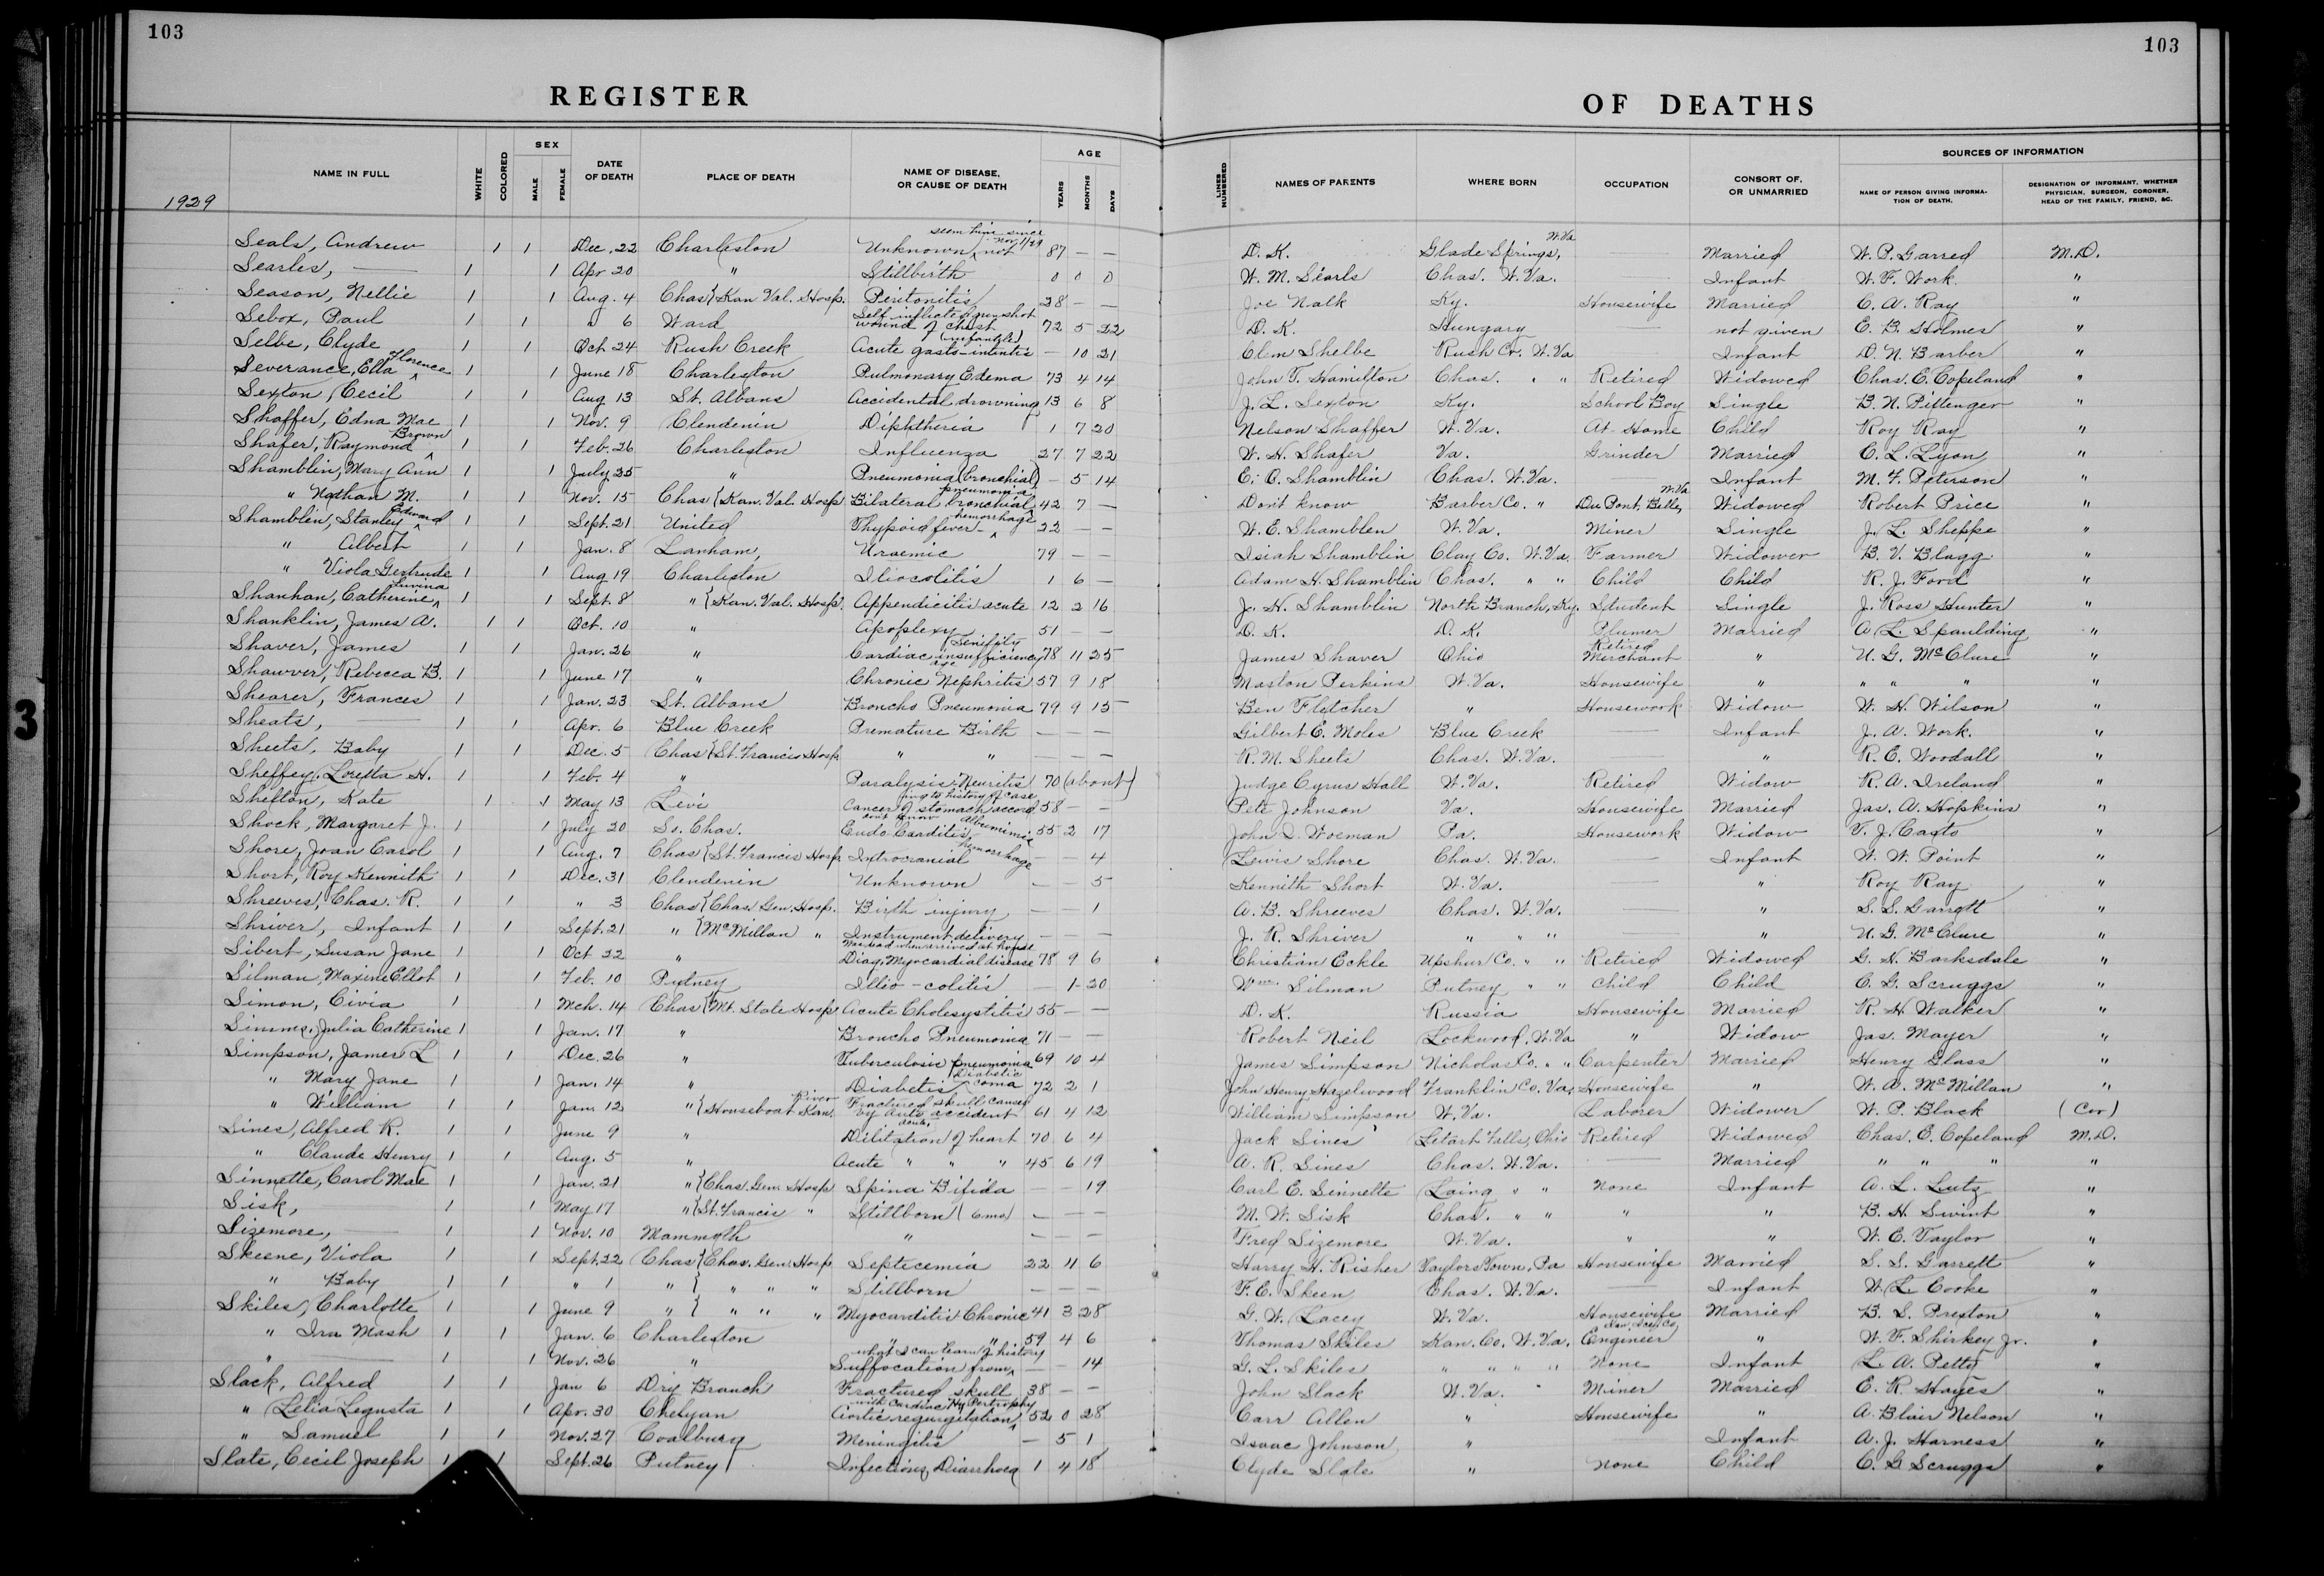 103
103
REGISTER OF DEATHS
1929
NAME IN FULL WHITE COLORED SEX MALE FEMALE DATE OF DEATH PLACE OF DEATH NAME OF DISEASE, OR CAUSE OF DEATH AGE YEARS MONTHS DAYS LINES NUMBERED NAMES OF PARENTS WHERE BORN OCCUPATION CONSORT OF, OR UNMARRIED SOURCES OF INFORMATION NAME OF PERSON GIVING INFORMATION OF DEATH. DESIGNATION OF INFORMANT, WHETHER PHYSICIAN, SURGEON, CORONER, HEAD OF THE FAMILY, FRIEND, &C.
Seals, Andrew 1 1 Dec. 22 Charleston Unknown, not seen him since Nov. 1/29 87 — — D. K. Glade Springs, W. Va Married W. P. Garred M.D.
Searles, — 1 1 Apr 20 " Stillbirth 0 0 0 W. M. Searls Chas. W. Va. Infant W. F. Work "
Season, Nellie 1 1 Aug. 4 Chas { Kan Val. Hosp. Peritonitis 28 — — Joe Nalk Ky. Housewife Married C. A. Ray "
Sebox, Paul 1 1 " 6 Ward Self inflicted gunshot wound of chest 72 5 22 D. K. Hungary — not given E. B. Holmes "
Selbe, Clyde 1 1 Oct 24 Rush Creek Acute gastro-intentis (infantile) — 10 21 Clem Shelbe Rush Co. W. Va Infant D. N. Barber "
Severance, Ella Florence 1 1 June 18 Charleston Pulmonary Edema 73 4 14 John T. Hamilton Chas. " " Retired Widowed Chas. E. Copeland "
Sexton, Cecil 1 1 Aug 13 St. Albans Accidental drowning 13 6 8 J. L. Sexton Ky. School Boy Single B. N. Pittenger "
Shaffer, Edna Mae 1 1 Nov. 9 Clendenin Diphtheria 1 7 20 Nelson Shaffer W. Va. At Home Child Roy Ray "
Shafer, Raymond Brown 1 1 Feb. 26 Charleston Influenza 27 7 22 W. H. Shafer Va. Grinder Married C. L. Lyon "
Shamblin, Mary Ann 1 1 July 25 " Pneumonia (bronchial) — 5 14 E. O. Shamblin Chas. W. Va. — Infant M. F. Peterson "
" Nathan M. 1 1 Nov. 15 Chas { Kan. Val. Hosp Bilateral bronchial pneumonia 42 7 — Don't know Barber Co. " Du Pont, Belle, W. Va Widowed Robert Price "
Shamblin, Stanley Edward 1 1 Sept. 21 United Thypoid fever - hemorrhage 22 — — W. E. Shamblen W. Va. Miner Single J. L. Sheppe "
" Albert 1 1 Jan. 8 Lanham, Uraemic 79 — — Isiah Shamblin Clay Co. W. Va. Farmer Widower B. V. Blagg "
" Viola Gertrude 1 1 Aug 19 Charleston Iliocolitis 1 6 — Adam H. Shamblin Chas. " " Child Child R. J. Ford "
Shanhan, Catherine Luvina 1 1 Sept. 8 " { Kan. Val. Hosp. Appendicitis acute 12 2 16 J. H. Shamblin North Branch, Ky. Student Single J. Ross Hunter "
Shanklin, James A. 1 1 Oct. 10 " Apoplexy 51 — — D. K. D. K. Plumer Married A. L. Spaulding "
Shaver, James 1 1 Jan. 26 " Cardiac insufficiency Senility age 78 11 25 James Shaver Ohio Retired Merchant " U. G. McClure "
Shawver, Rebecca B. 1 1 June 17 " Chronic Nephritis 57 9 18 Maston Perkins W. Va. Housewife " " " " "
Shearer, Frances 1 1 Jan. 23 St. Albans Broncho Pneumonia 79 9 15 Ben Fletcher " Housework Widow W. H. Wilson "
Sheats, — 1 1 Apr. 6 Blue Creek Premature Birth — — — Gilbert E. Moles Blue Creek — Infant J. A. Work. "
Sheets, Baby 1 1 Dec. 5 Chas { St. Francis Hosp " " — — — R. M. Sheets Chas. W. Va. — " R. E. Woodall "
Sheffey, Loretta H. 1 1 Feb. 4 " Paralysis Neuritis 70 (about) Judge Cyrus Hall W. Va. Retired Widow R. A. Ireland "
Shelton, Kate 1 1 May 13 Levi Cancer of stomach according to history of case 58 — — Pete Johnson Va. Housewife Married Jas. A. Hopkins "
Shock, Margaret J. 1 1 July 20 So. Chas. Endo Carditis don't know Albuminia 55 2 17 John D. Woeman Pa. Housework Widow V. J. Casto "
Shore, Joan Carol 1 1 Aug. 7 Chas { St. Francis Hosp Introcranial hemorrhage — — 4 Lewis Shore Chas. W. Va. — Infant W. W. Point "
Short, Roy Kennith 1 1 Dec. 31 Clendenin Unknown — — 5 Kennith Short W. Va. — " Roy Ray "
Shreeves, Chas. R. 1 1 " 3 Chas { Chas. Gen. Hosp. Birth injury — — 1 A. B. Shreeves Chas. W. Va. — " S. S. Garrett "
Shriver, Infant 1 1 Sept. 21 " { McMillan " Instrument delivery — — — J. R. Shriver " " " — " U. G. McClure "
Sibert, Susan Jane 1 1 Oct 22 " Was dead when arrived at house Diag. Myocardial disease 78 9 6 Christian Eckle Upshur Co. " " Retired Widowed G. H. Barksdale "
Silman, Maxine Ellot 1 1 Feb. 10 Putney Illio-colitis — 1 20 Wm Silman Putney " " Child Child C. G. Scruggs "
Simon, Civia 1 1 Mch. 14 Chas { Mt. State Hosp Acute Cholesystitis 55 — — D. K. Russia Housewife Married R. H. Walker "
Simms, Julia Catherine 1 1 Jan. 17 " Broncho Pneumonia 71 — — Robert Neil Lockwood, W. Va " Widow Jas. Mayer "
Simpson, James L 1 1 Dec. 26 " Tuberculosic pneumonia 69 10 4 James Simpson Nicholas Co. " " Carpenter Married Henry Glass "
" Mary Jane 1 1 Jan. 14 " Diabetis Diabetic coma 72 2 1 John Henry Hazelwood Franklin Co. Va. Housewife " W. A. McMillan "
" William 1 1 Jan. 12 " { Houseboat Kan. River Fractured skull caused by auto accident 61 4 12 William Simpson W. Va. Laborer Widower W. P. Black (Cor)
Sines, Alfred R. 1 1 June 9 " Dilitation of heart acute 70 6 4 Jack Sines Letart Falls, Ohio Retired Widowed Chas. E. Copeland M.D.
" Claude Henry 1 1 Aug. 5 " Acute " " " 45 6 19 A. R. Sines Chas. W. Va. — Married " " " "
Sinnette, Carol Mae 1 1 Jan. 21 " { Chas. Gen. Hosp Spina Bifida — — 19 Carl E. Sinnette Laing " " None Infant A. L. Lutz "
Sisk, 1 1 May 17 " { St. Francis " Stillborn (6 mo) — — — M. W. Sisk Chas. " " " " B. H. Swint "
Sizemore, — 1 1 Nov. 10 Mammoth " — — — Fred Sizemore W. Va. " " W. E. Taylor "
Skeene, Viola 1 1 Sept. 22 Chas { Chas. Gen. Hosp Septicemia 22 11 6 Harry H. Risher Taylors Town, Pa Housewife Married S. S. Garrett "
" Baby 1 1 " 1 " { " " " Stillborn — — — F. E. Skeen Chas. W. Va. — Infant W. L. Cooke "
Skiles, Charlotte 1 1 June 9 " { " " " Myocarditis Chronic 41 3 28 G. W. Lacey W. Va. Housewife Married B. S. Preston "
" Ira Mash 1 1 Jan. 6 Charleston " " 59 4 6 Thomas Skiles Kan. Co. W. Va. Engineer " W. F. Shirkey Jr. "
" — 1 1 Nov. 26 " Suffocation from what I can learn of history — — 14 G. L. Skiles " " " " None Infant L. A. Petty "
Slack, Alfred 1 1 Jan 6 Dry Branch Fractured skull 38 — — John Slack W. Va. Miner Married E. R. Hayes "
" Lelia Legusta 1 1 Apr. 30 Chelyan Aortic regurgitation with Cardiac Hypertrophy 52 0 28 Carr Allen " Housewife " A. Blair Nelson "
" Samuel 1 1 Nov. 27 Coalburg Meningitis — 5 1 Isaac Johnson " — Infant A. J. Harness "
Slate, Cecil Joseph 1 1 Sept. 26 Putney Infectious Diarrhoea 1 4 18 Clyde Slate " None Child C. G Scruggs "
3